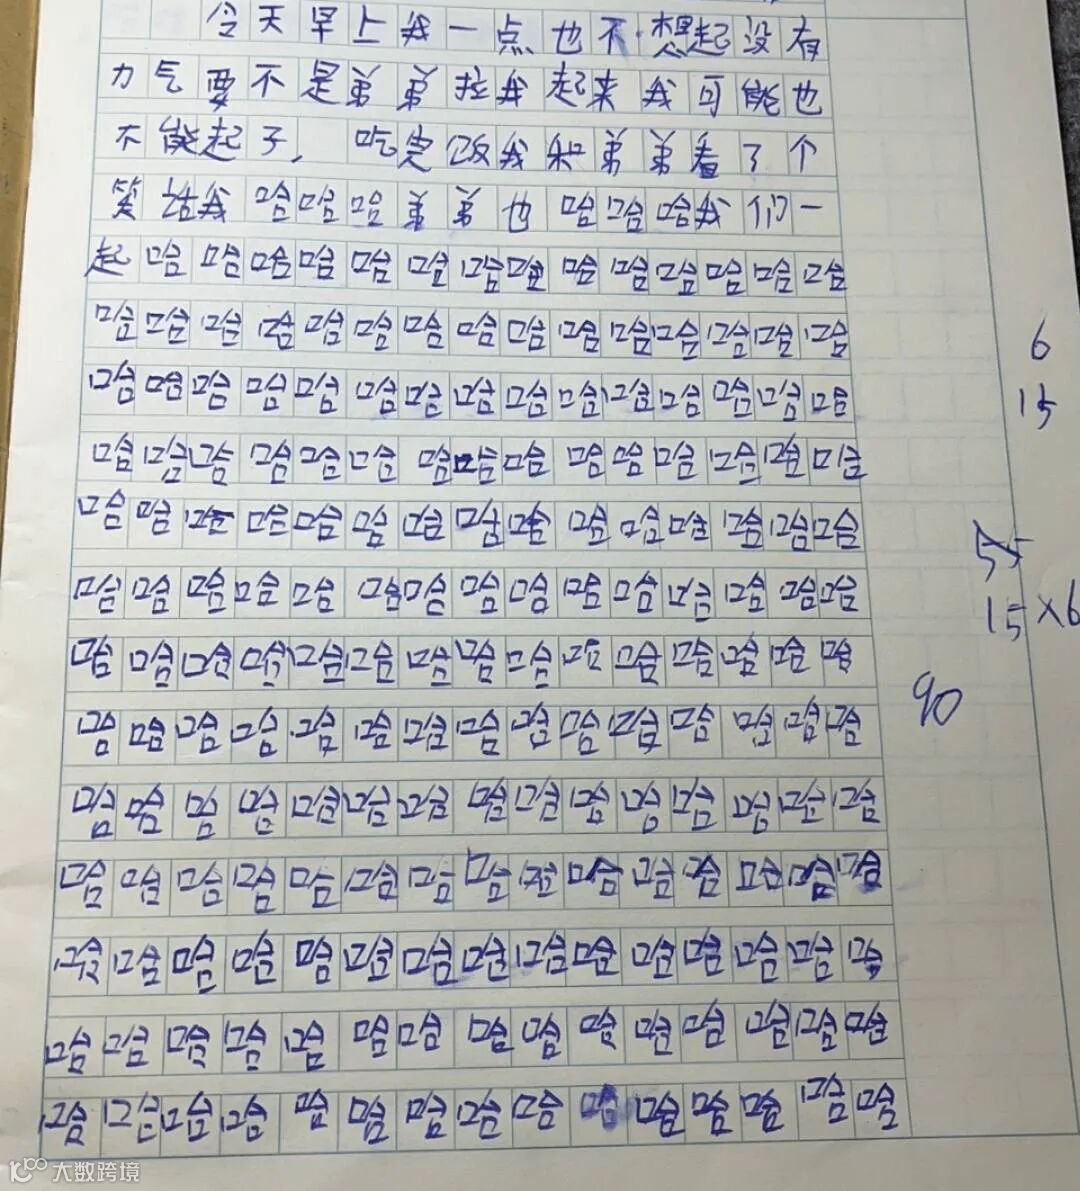 今天早上我一点也不想起没有
力气要不是弟弟拉我起来我可能也
不能起子，吃完饭我和弟弟看了个
笑话我哈哈哈弟弟也哈哈哈我们一
起哈哈哈哈哈哈哈哈哈哈哈哈哈哈
哈哈哈哈哈哈哈哈哈哈哈哈哈哈哈
哈哈哈哈哈哈哈哈哈哈哈哈哈哈哈
哈哈哈哈哈哈哈哈哈哈哈哈哈哈哈
哈哈哈哈哈哈哈哈哈哈哈哈哈哈哈
哈哈哈哈哈哈哈哈哈哈哈哈哈哈哈
哈哈哈哈哈哈哈哈哈哈哈哈哈哈哈
哈哈哈哈哈哈哈哈哈哈哈哈哈哈哈
哈哈哈哈哈哈哈哈哈哈哈哈哈哈哈
哈哈哈哈哈哈哈哈哈哈哈哈哈哈哈
哈哈哈哈哈哈哈哈哈哈哈哈哈哈哈
哈哈哈哈哈哈哈哈哈哈哈哈哈哈哈
哈哈哈哈哈哈哈哈哈哈哈哈哈哈哈
6
15
15×6
90
大数跨境